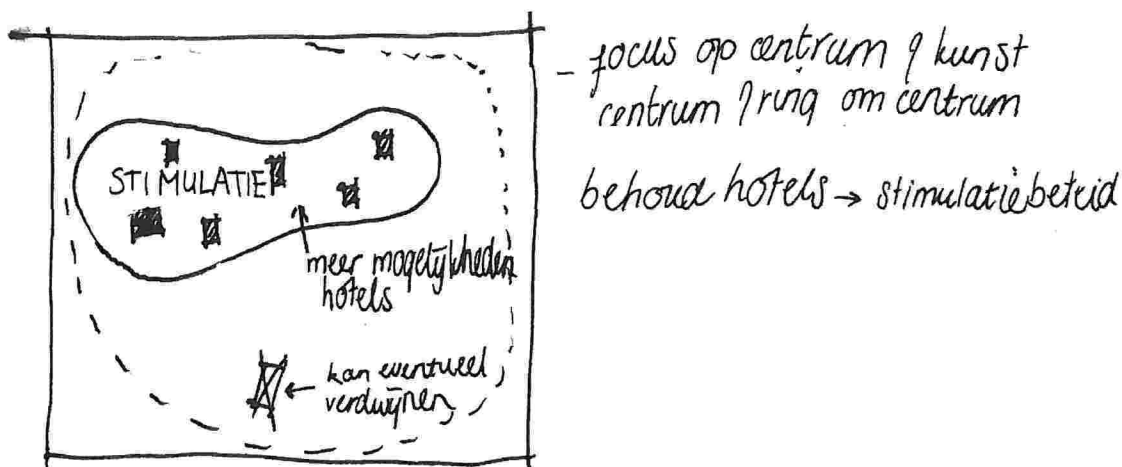 STIMULATIE
meer mogelijkheden
hotels
kan eventueel
verdwijnen
- focus op centrum & kunst
centrum & ring om centrum
behoud hotels → stimulatiebeleid